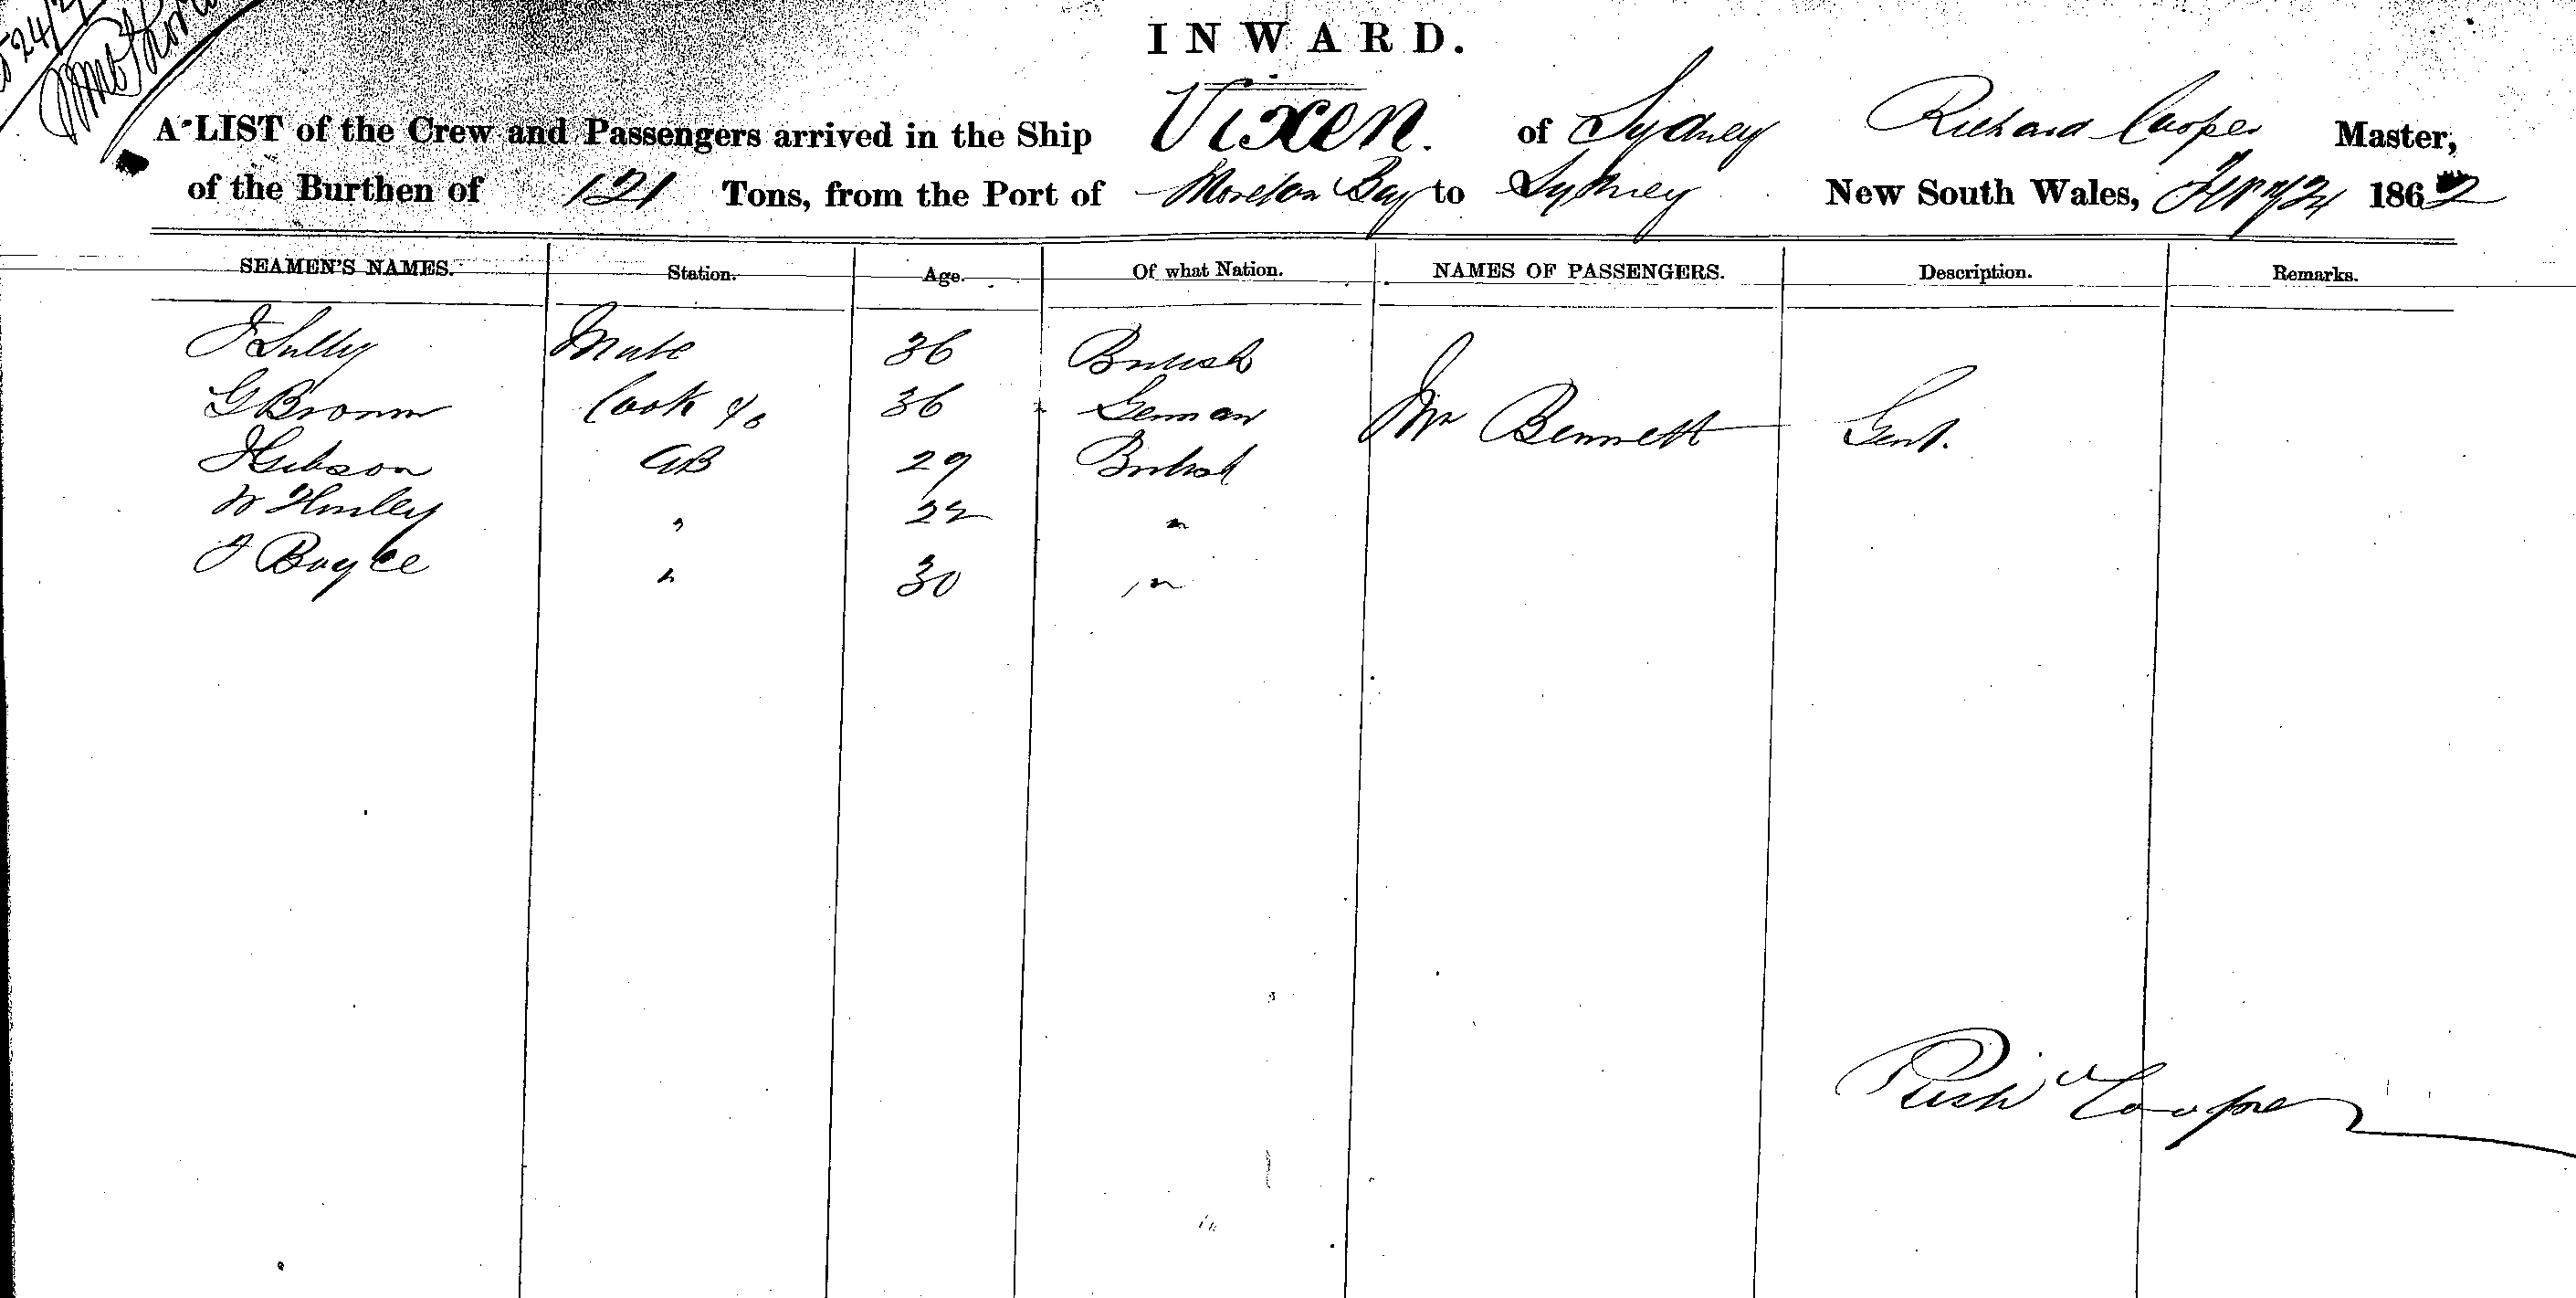 24/2
INWARD.
A LIST of the Crew and Passengers arrived in the Ship Vixen. of Sydney Richard Cooper Master,
of the Burthen of 121 Tons, from the Port of Moreton Bay to Sydney New South Wales, 24 1862
SEAMEN'S NAMES. Station. Age. Of what Nation. NAMES OF PASSENGERS. Description. Remarks.
J Sully Mate 36 British
G Brown Cook &c 36 German Mr Bennett Gent.
J Gibson AB 29 British
W 22 "
J Boyce " 30 "
Richd Cooper